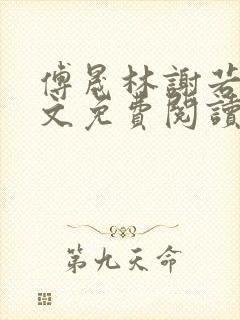 傅晟林謝若
文免費閱讀
第九天命